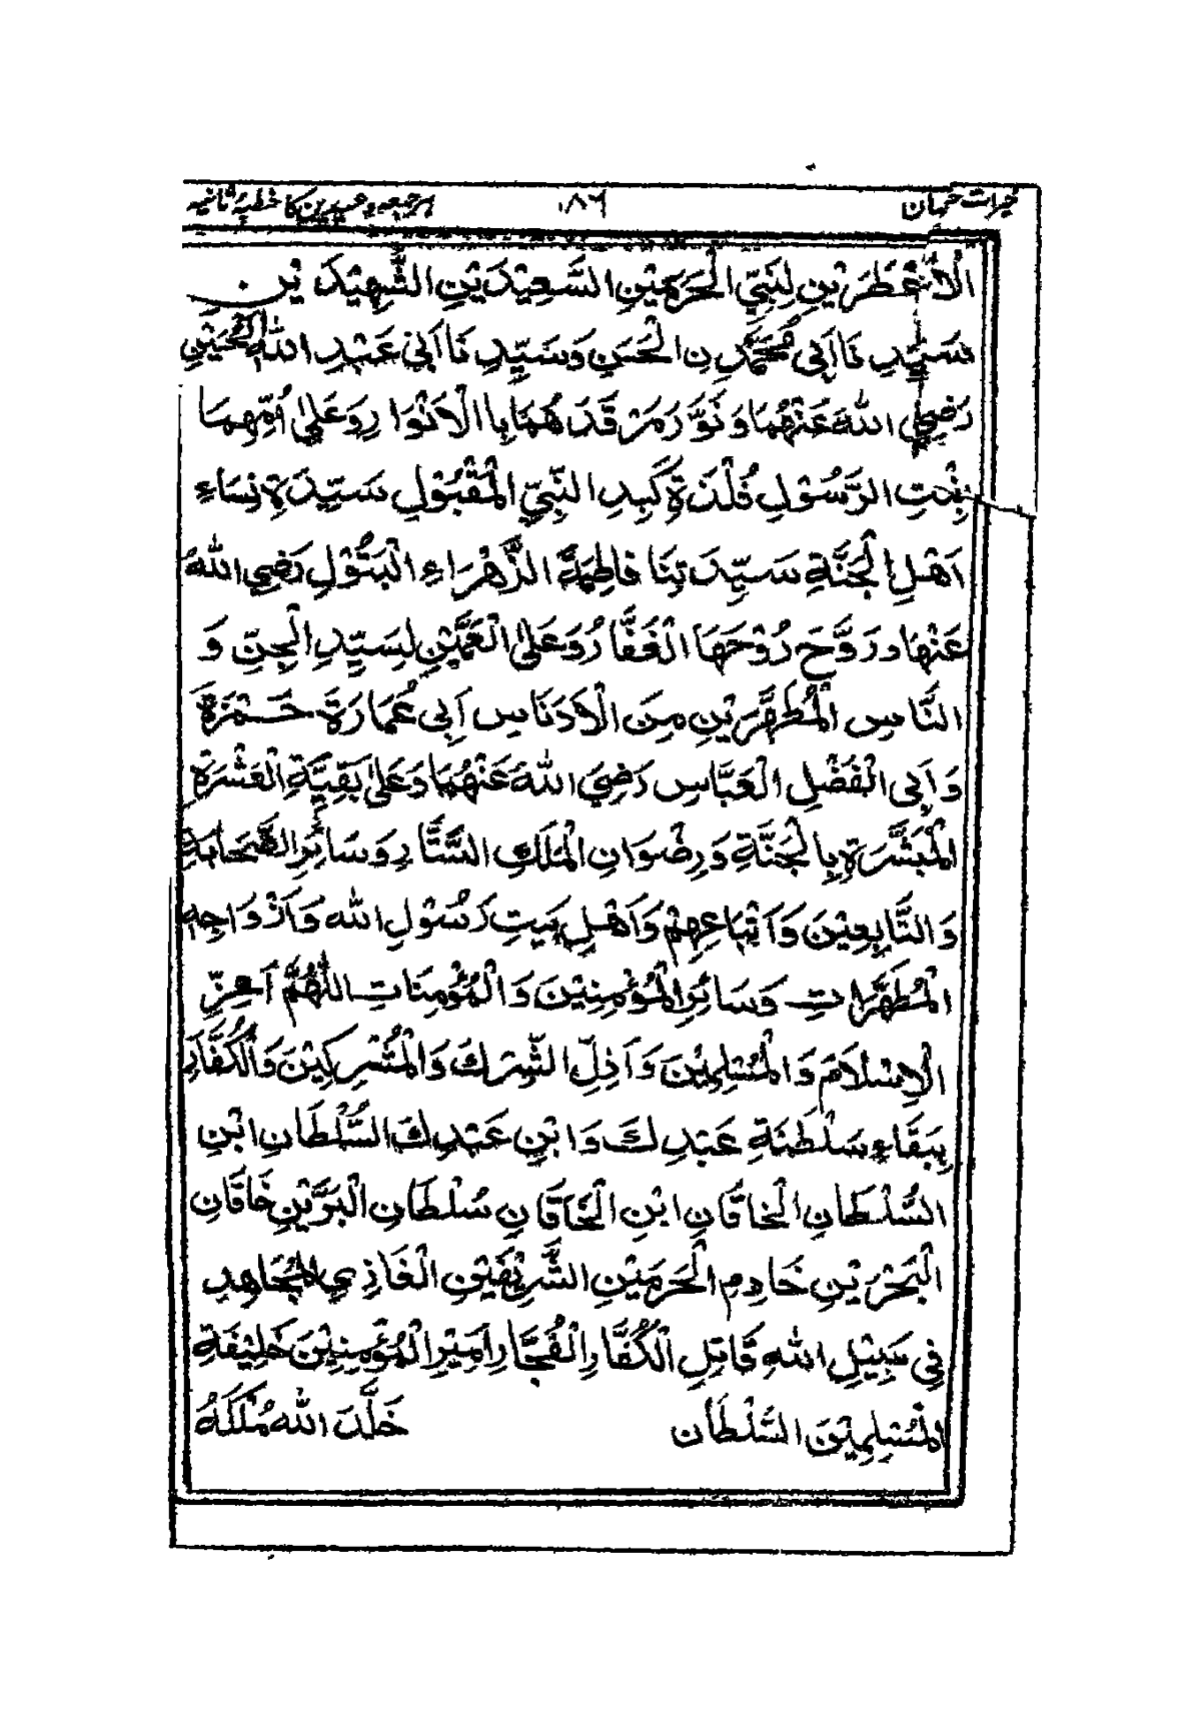 خیرات حسان ۱۸۶ ہر جمعہ و عیدین کا خطبۂ ثانیہ
الْاَعْطَرَیْنِ لِنَبِیِّ الْحَرَمَیْنِ السَّعِیْدَیْنِ الشَّهِیْدَیْنِ
سَیِّدِنَا اَبِی مُحَمَّدِنِ الْحَسَنِ وَسَیِّدِنَا اَبِیْ عَبْدِ اللهِ الْحُسَیْنِ
رَضِیَ اللهُ عَنْهُمَا وَنَوَّرَ مَرْقَدَهُمَا بِالْاَنْوَارِ وَعَلٰی اُمِّهِمَا
بِنْتِ الرَّسُوْلِ فُلْذَةِ کَبِدِ النَّبِیِّ الْمَقْبُوْلِ سَیِّدَةِ نِسَاءِ
اَهْلِ الْجَنَّةِ سَیِّدَتِنَا فَاطِمَةَ الزَّهْرَاءِ الْبَتُوْلِ رَضِیَ اللهُ
عَنْهَا وَرَوَّحَ رُوْحَهَا الْغَفَّارُ وَعَلَی الْعَمَّیْنِ لِسَیِّدِ الْجِنِّ وَ
النَّاسِ الْمُطَهَّرَیْنِ مِنَ الْاَدْنَاسِ اَبِی عُمَارَةَ حَمْزَةَ
وَاَبِی الْفَضْلِ الْعَبَّاسِ رَضِیَ اللهُ عَنْهُمَا وَعَلٰی بَقِیَّةِ الْعَشْرَةِ
الْمُبَشَّرَةِ بِالْجَنَّةِ وَرِضْوَانِ الْمَلَكِ السَّتَّارِ وَسَائِرِ الصَّحَابَةِ
وَالتَّابِعِیْنَ وَاَتْبَاعِهِمْ وَاَهْلِ بَیْتِ رَسُوْلِ الله وَاَزْوَاجِهِ
الْمُطَهَّرَاتِ وَسَائِرِ الْمُؤْمِنِیْنَ وَالْمُؤْمِنَاتِ اللّٰهُمَّ اَعِزِّ
الْاِسْلَامَ وَالْمُسْلِمِیْنَ وَاَذِلِّ الشِّرْكَ وَالْمُشْرِکِیْنَ وَالْکُفَّارَ
بِبَقَاءِ سَلْطَنَةِ عَبْدِكَ وَابْنِ عَبْدِكَ السُّلْطَانِ ابْنِ
السُّلْطَانِ الْخَاقَانِ ابْنِ الْخَاقَانِ سُلْطَانِ الْبَرَّیْنِ خَاقَانِ
الْبَحْرَیْنِ خَادِمِ الْحَرَمَیْنِ الشَّرِیْفَیْنِ الْغَاذِیِ الْمُجَاهِدِ
فِی سَبِیْلِ اللهِ قَاتِلِ الْکُفَّارِ الْفُجَّارِ اَمِیْرِ الْمُؤْمِنِیْنَ خَلِیْفَةِ
الْمُسْلِمِیْنَ السُّلْطَان خَلَّدَ اللهُ مُلْکَهُ